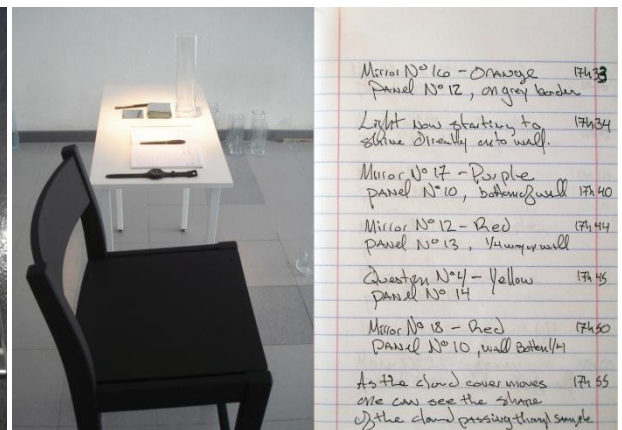 Mirror Nº 16 - Orange 17h33
Panel Nº 12, on grey border
Light now starting to 17h34
shine directly onto wall.
Mirror Nº 17 - Purple
panel Nº 10, bottom of wall 17h40
Mirror Nº 12 - Red 17h44
panel Nº 13, 1/4 way up wall
Question Nº 4 - Yellow 17h45
panel Nº 14
Mirror Nº 18 - Red 17h50
panel Nº 10, wall Bottom 1/4
As the cloud cover moves 17h55
one can see the shape
of the cloud passing through